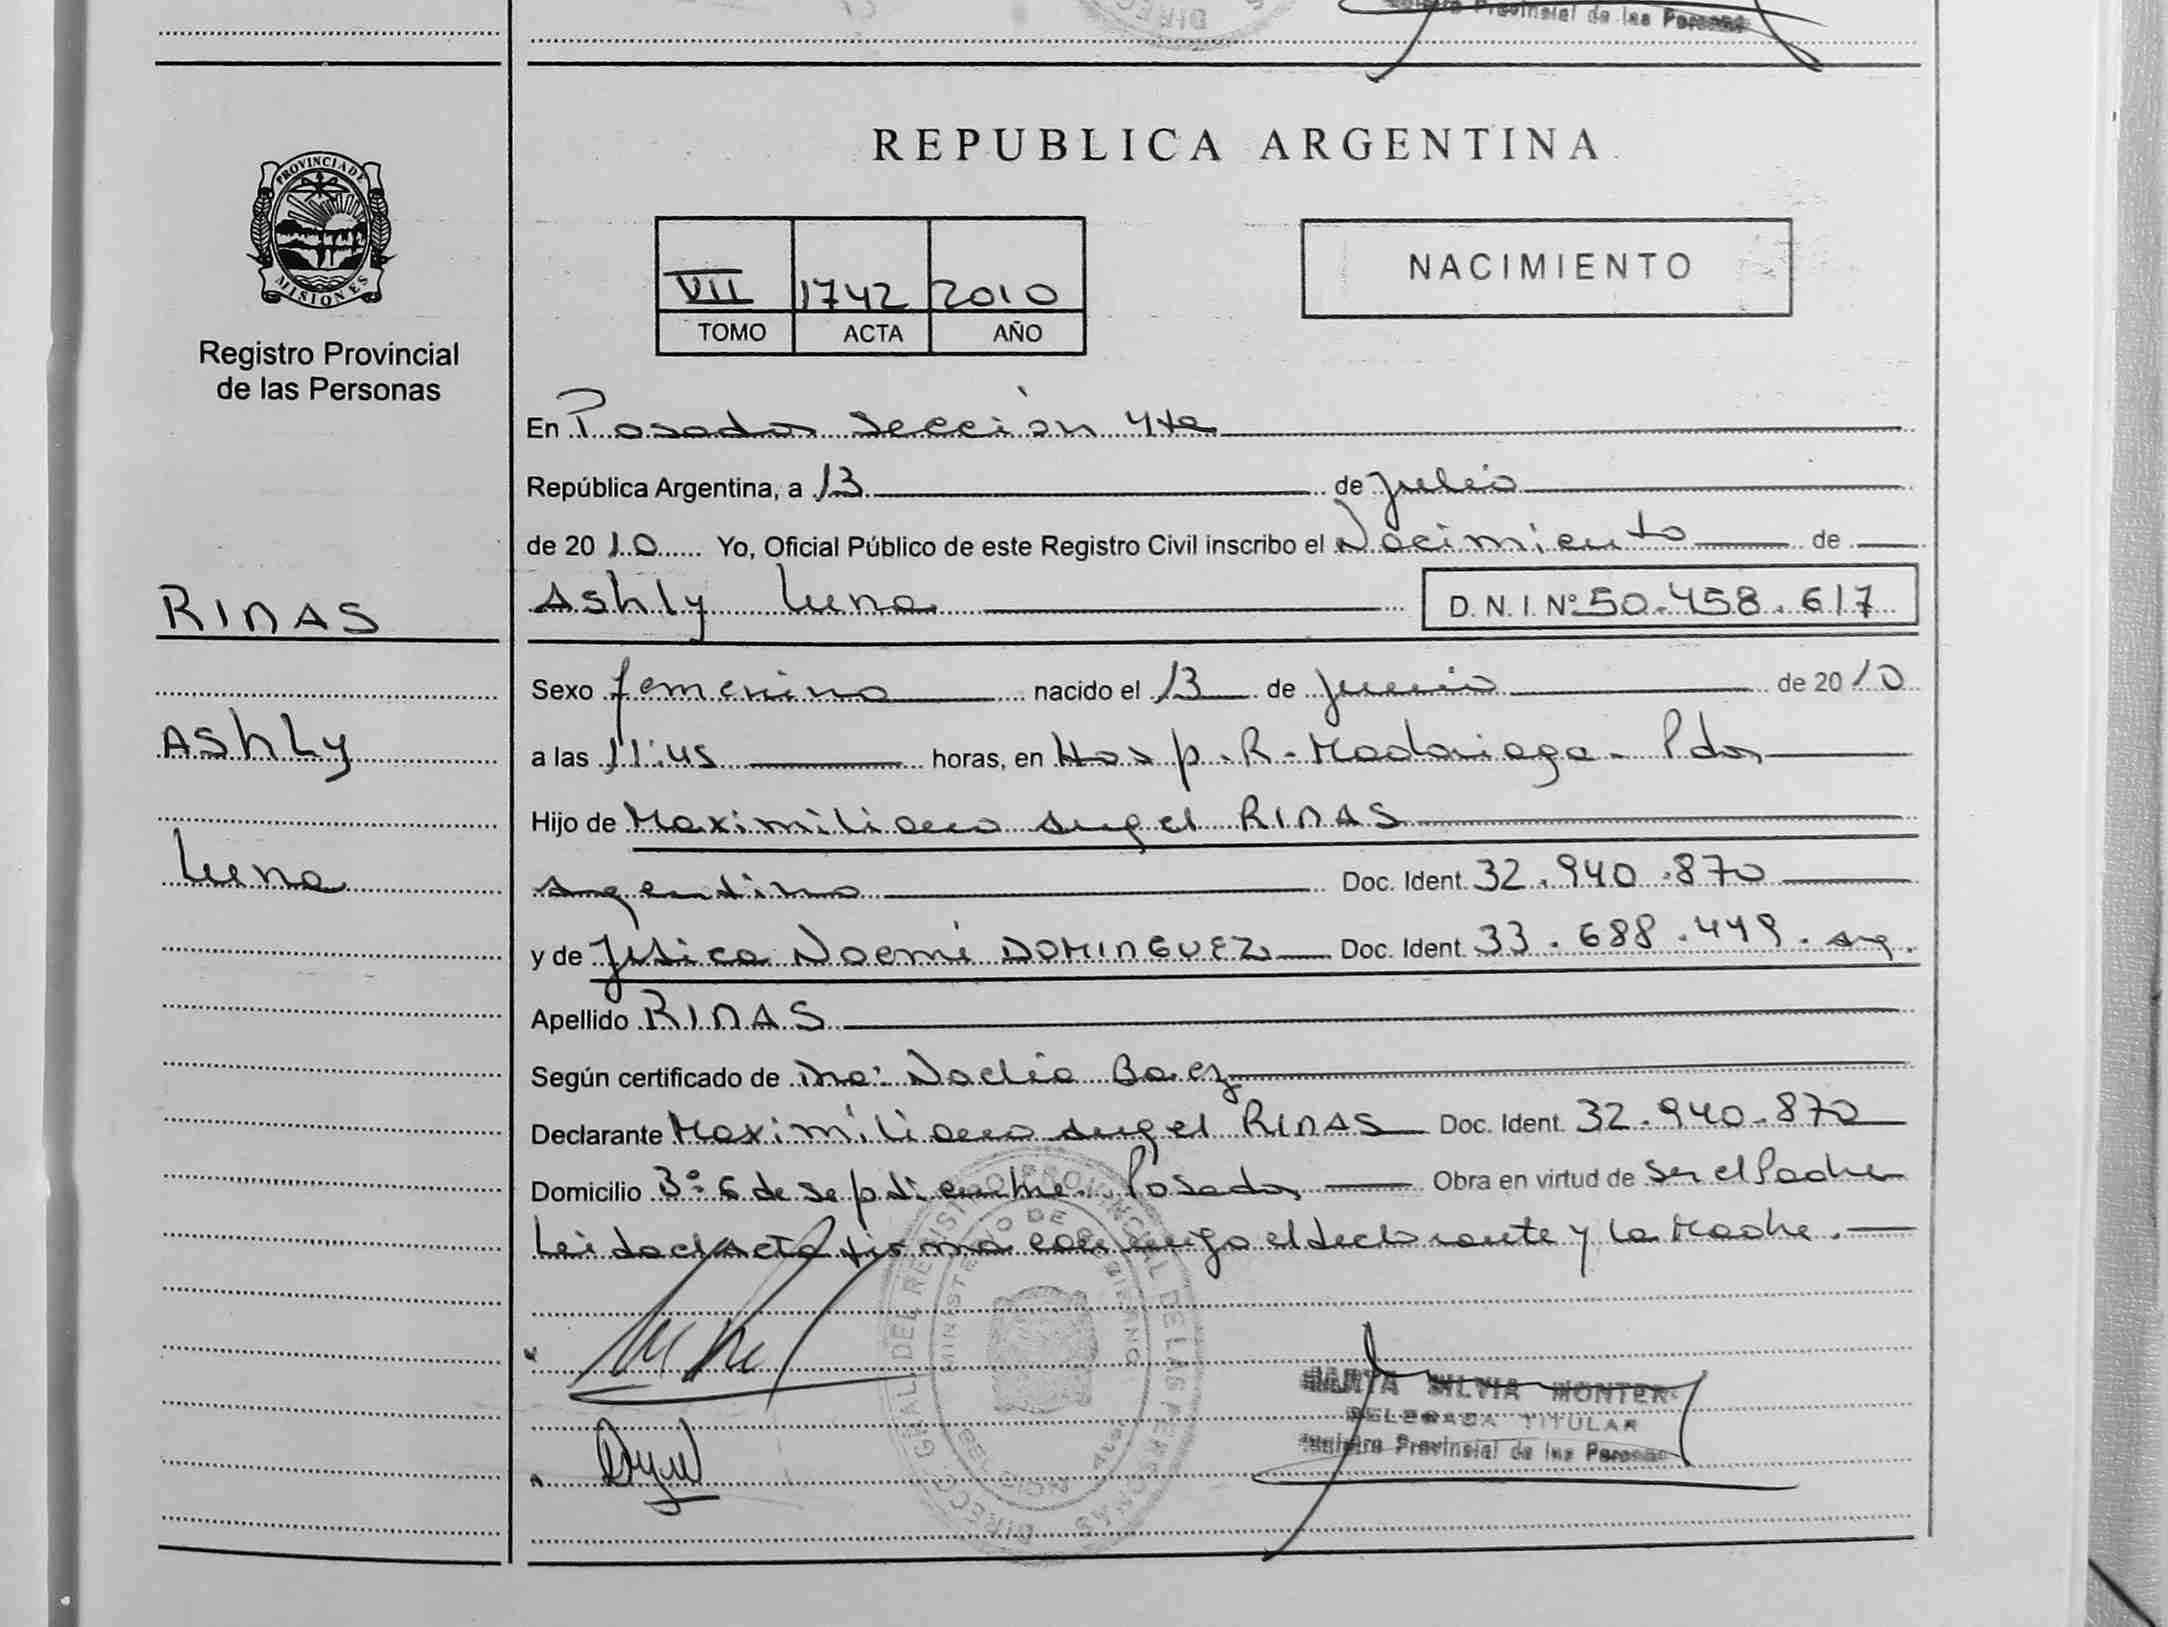 Registro Provincial de las Personas
REPUBLICA ARGENTINA
PROVINCIA DE
MISIONES
Registro Provincial
de las Personas
VII 1742 2010
TOMO ACTA AÑO
NACIMIENTO
En Posadas Sección 4ta
República Argentina, a 13 de Julio
de 2010 Yo, Oficial Público de este Registro Civil inscribo el Nacimiento de
RINAS
Ashly Luna D. N. I. Nº 50.458.617
Sexo femenino nacido el 13 de Junio de 2010
Ashly
a las 11:45 horas, en Hosp. R. Madariaga - Pdas
Hijo de Maximiliano Angel RINAS
Luna
Argentino Doc. Ident. 32.940.870
y de Jésica Noemí DOMINGUEZ Doc. Ident. 33.688.449. arg.
Apellido RINAS
Según certificado de Nadia Baez
Declarante Maximiliano Angel RINAS Doc. Ident. 32.940.870
Domicilio Bº 6 de septiembre. Posadas Obra en virtud de ser el Padre
Leida el Acta firma conmigo el declarante y la Madre.
MARTA SILVIA MONTER
DELEGADA TITULAR
Registro Provinsial de las Personas